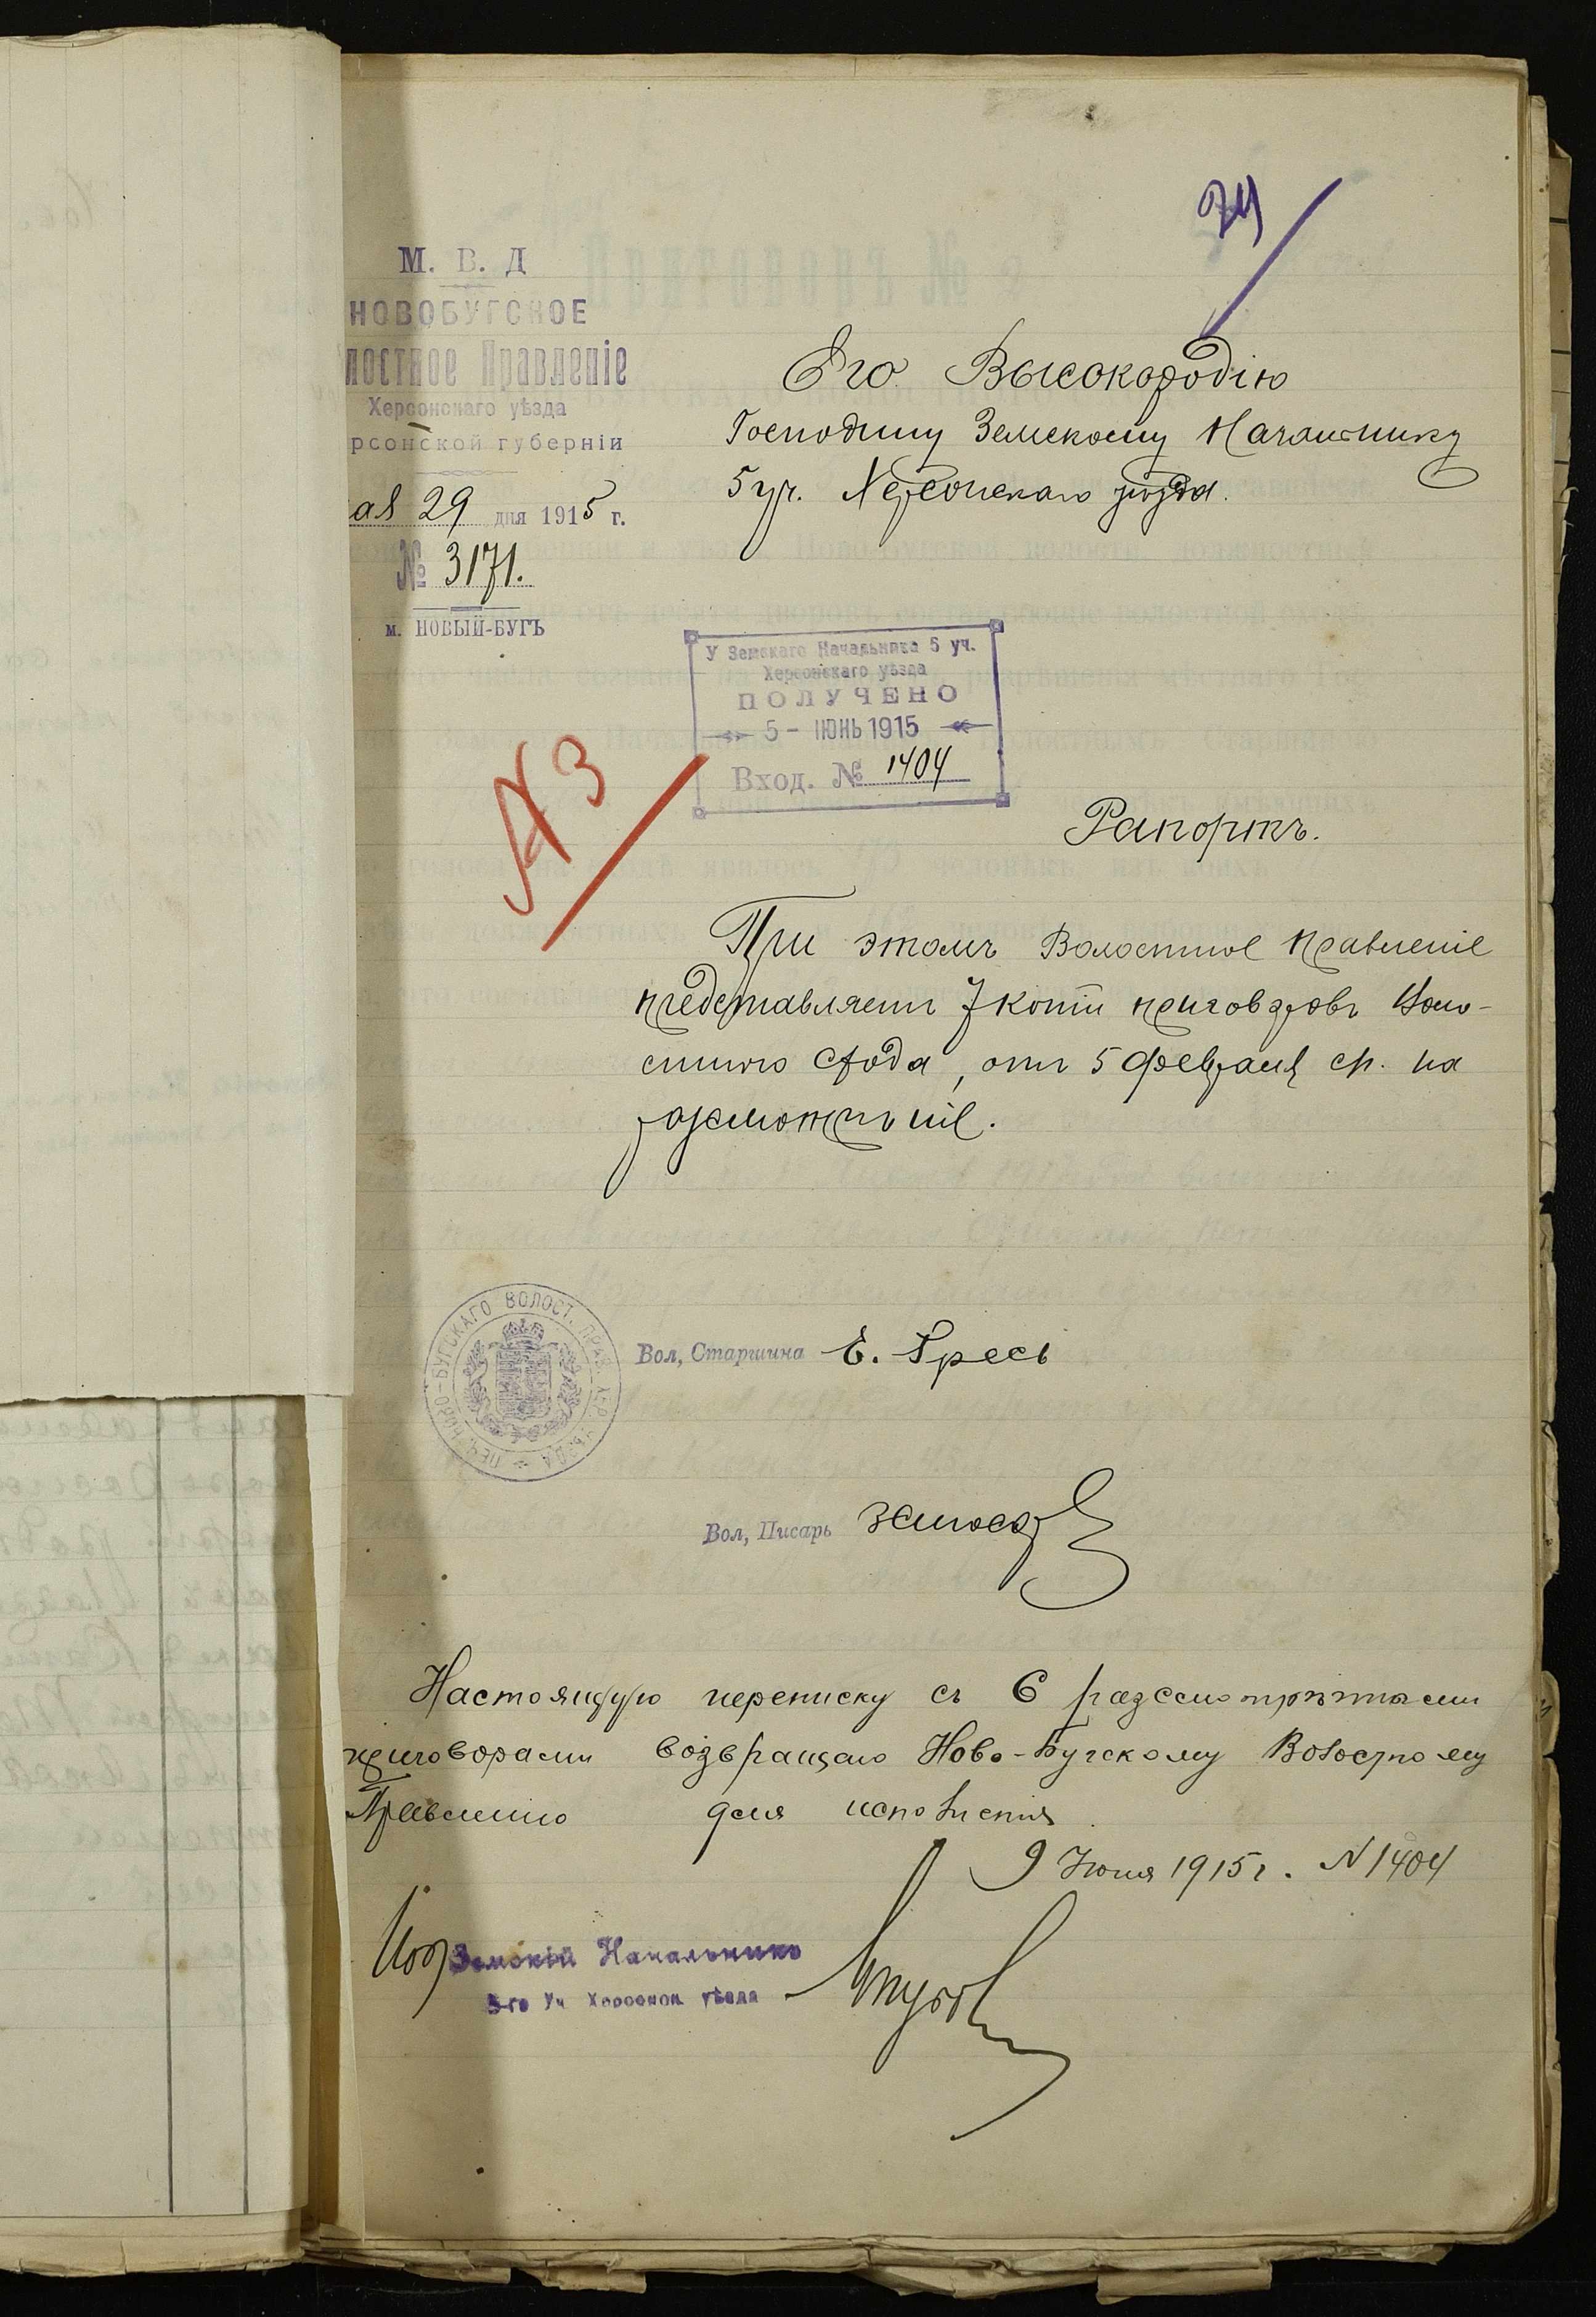 24
М. В. Д
НОВОБУГСКОЕ
лостное Правленіе
Херсонскаго уѣзда
рсонской губерніи
ая 29 дня 1915 г.
№ 3171.
м. НОВЫЙ-БУГЪ
Его Высокородію
Господину Земскому Начальнику
5 уч. Херсонскаго уѣзда.
У Земскаго Начальника 5 уч.
Херсонскаго уѣзда
ПОЛУЧЕНО
5 - ІЮНЬ 1915
Вход. № 1404
Рапортъ.
При этомъ Волостное Правленіе
представляетъ 7 копій приговоровъ Воло-
стного Схода, отъ 5 февраля с/г. на
разсмотрѣніе.
НОВО-БУГСКАГО ВОЛОСТ. ПРАВ. ХЕР. УѢЗДА
Вол, Старшина Е. Гресь
Вол, Писарь
Настоящую переписку съ 6 разсмотрѣнными
приговорами возвращаю Ново-Бугскому Волостному
Правленію для исполненія.
9 Іюня 1915 г. N 1404
Земскій Начальникъ
5-го Уч Херсонск уѣзда